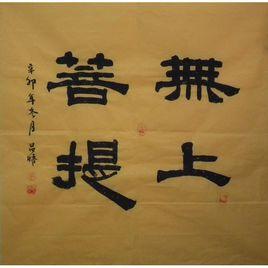 無上
菩提
辛卯年冬月